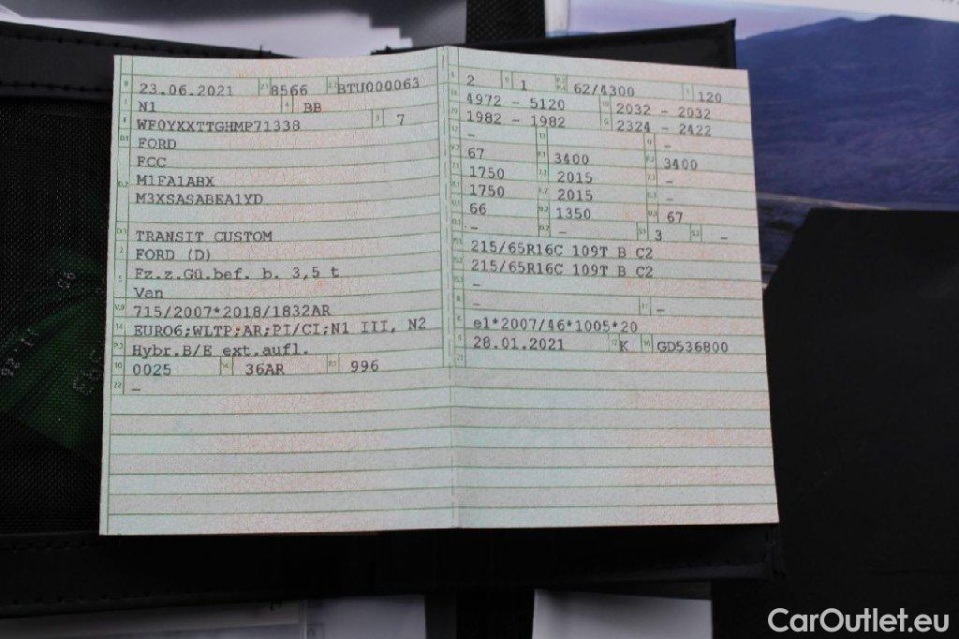 23.06.2021 8566 BTU000063
N1 BB
WF0YXXTTGHMP71338 7
FORD
FCC
M1FA1ABX
M3XSASABEA1YD
TRANSIT CUSTOM
FORD (D)
Fz.z.Gü.bef. b. 3,5 t
Van
715/2007*2018/1832AR
EURO6;WLTP;AR;PI/CI;N1 III, N2
Hybr.B/E ext.aufl.
0025 36AR 996
–
2 1 62/4300 120
4972 - 5120 2032 - 2032
1982 - 1982 2324 - 2422
– –
67 3400 3400
1750 2015 –
1750 2015 –
66 1350 67
– – 3 –
215/65R16C 109T B C2
215/65R16C 109T B C2
–
– –
e1*2007/46*1005*20
28.01.2021 K GD536800
CarOutlet.eu